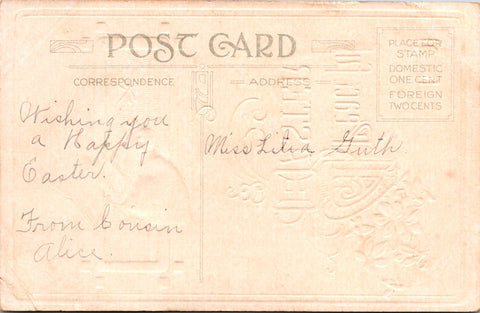 POST CARD
CORRESPONDENCE
ADDRESS
PLACE FOR
STAMP
DOMESTIC
ONE CENT
FOREIGN
TWO CENTS
Wishing you
a Happy
Easter.
From Cousin
Alice.
Miss Lilia Guth.